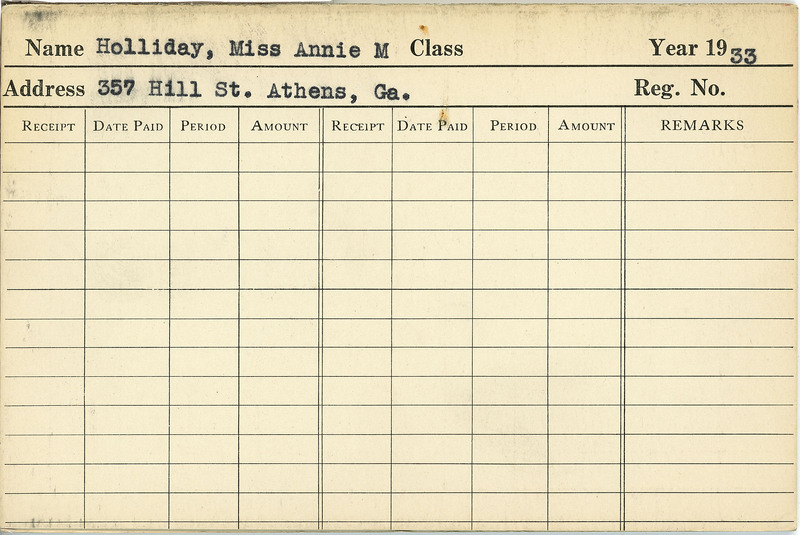 Name Holliday, Miss Annie M Class Year 1933
Address 357 Hill St. Athens, Ga. Reg. No.
RECEIPT DATE PAID PERIOD AMOUNT RECEIPT DATE PAID PERIOD AMOUNT REMARKS